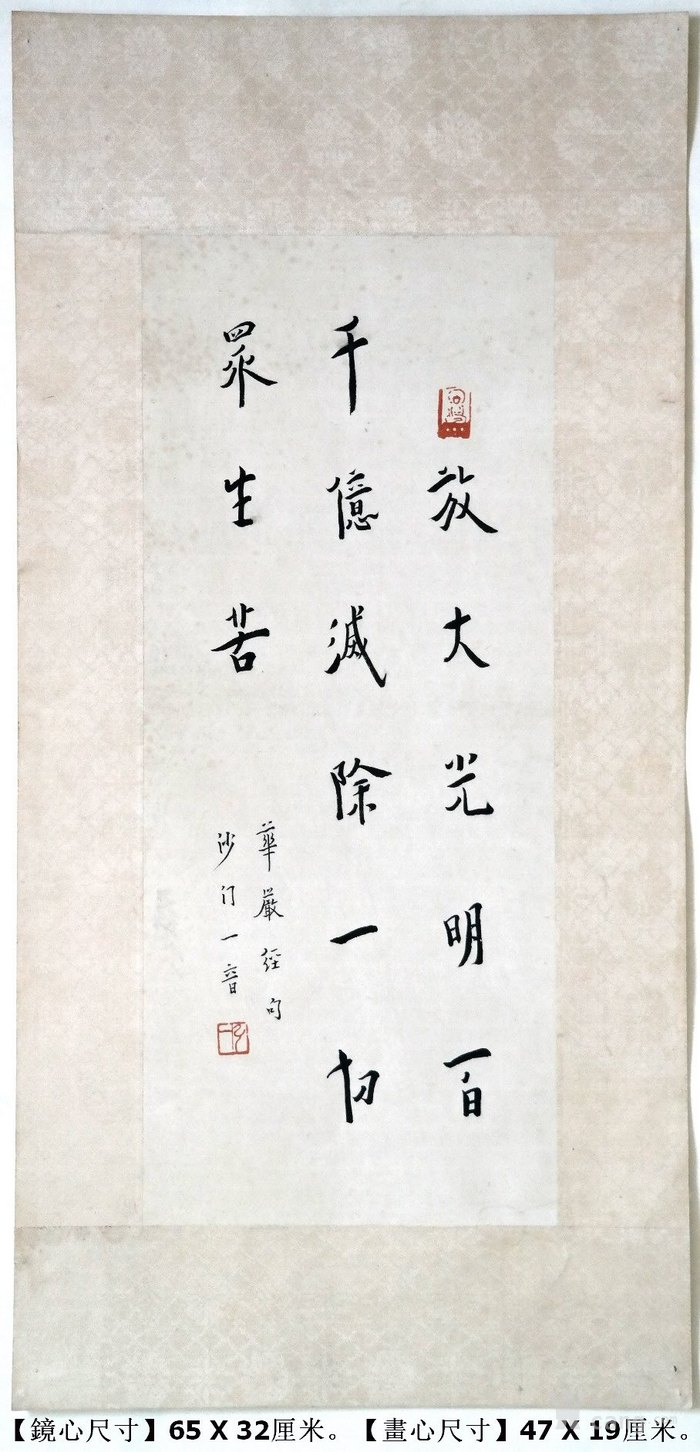 放大光明百
千億滅除一切
眾生苦
華嚴經句
沙门一音
【鏡心尺寸】65 X 32厘米。【畫心尺寸】47 X 19厘米。